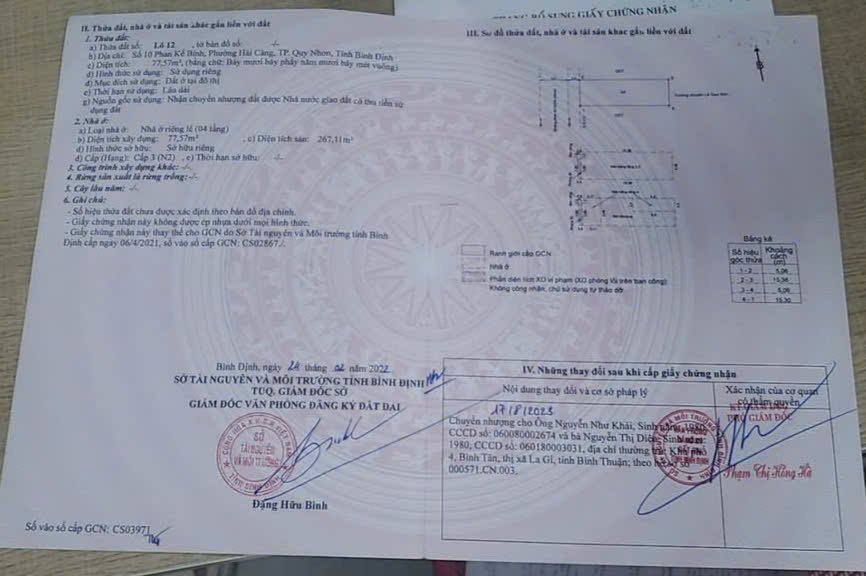 BỔ SUNG GIẤY CHỨNG NHẬN
II. Thửa đất, nhà ở và tài sản khác gắn liền với đất
1. Thửa đất:
a) Thửa đất số: Lô 12 , tờ bản đồ số: -/-
b) Địa chỉ: Số 10 Phan Kế Bính, Phường Hải Cảng, TP. Quy Nhơn, Tỉnh Bình Định
c) Diện tích: 77,57m², (bằng chữ: Bảy mươi bảy phẩy năm mươi bảy mét vuông)
d) Hình thức sử dụng: Sử dụng riêng
đ) Mục đích sử dụng: Đất ở tại đô thị
e) Thời hạn sử dụng: Lâu dài
g) Nguồn gốc sử dụng: Nhận chuyển nhượng đất được Nhà nước giao đất có thu tiền sử
dụng đất
2. Nhà ở:
a) Loại nhà ở: Nhà ở riêng lẻ (04 tầng)
b) Diện tích xây dựng: 77,57m² , c) Diện tích sàn: 267,11m²
d) Hình thức sở hữu: Sở hữu riêng
đ) Cấp (Hạng): Cấp 3 (N2) , e) Thời hạn sở hữu: -/-
3. Công trình xây dựng khác: -/-
4. Rừng sản xuất là rừng trồng: -/-
5. Cây lâu năm: -/-
6. Ghi chú:
- Số hiệu thửa đất chưa được xác định theo bản đồ địa chính.
- Giấy chứng nhận này không được ép nhựa dưới mọi hình thức.
- Giấy chứng nhận này thay thế cho GCN do Sở Tài nguyên và Môi trường tỉnh Bình
Định cấp ngày 06/4/2021, số vào sổ cấp GCN: CS02867./.
Bình Định, ngày 24 tháng 02 năm 2022
SỞ TÀI NGUYÊN VÀ MÔI TRƯỜNG TỈNH BÌNH ĐỊNH
TUQ. GIÁM ĐỐC SỞ
GIÁM ĐỐC VĂN PHÒNG ĐĂNG KÝ ĐẤT ĐAI
SỞ
TÀI NGUYÊN
VÀ MÔI TRƯỜNG
Đặng Hữu Bình
Số vào sổ cấp GCN: CS03971
III. Sơ đồ thửa đất, nhà ở và tài sản khác gắn liền với đất
Ranh giới cấp GCN
Nhà ở
Phần diện tích XD vi phạm (XD phòng lồi trên ban công)
Không công nhận, chủ sử dụng tự tháo dỡ.
Bảng kê
Số hiệu góc thửa Khoảng cách (m)
1 - 2 5,06
2 - 3 15,36
3 - 4 5,06
4 - 1 15,30
IV. Những thay đổi sau khi cấp giấy chứng nhận
Nội dung thay đổi và cơ sở pháp lý
Xác nhận của cơ quan
có thẩm quyền
17/8/2023
PHÓ GIÁM ĐỐC
Chuyển nhượng cho Ông Nguyễn Như Khải, Sinh năm: 1980,
CCCD số: 060080002674 và bà Nguyễn Thị Diện, Sinh năm:
1980, CCCD số: 060180003031, địa chỉ thường trú: Khu phố
4, Bình Tân, thị xã La Gi, tỉnh Bình Thuận; theo hồ sơ số
000571.CN.003.
Phạm Thị Hồng Hà